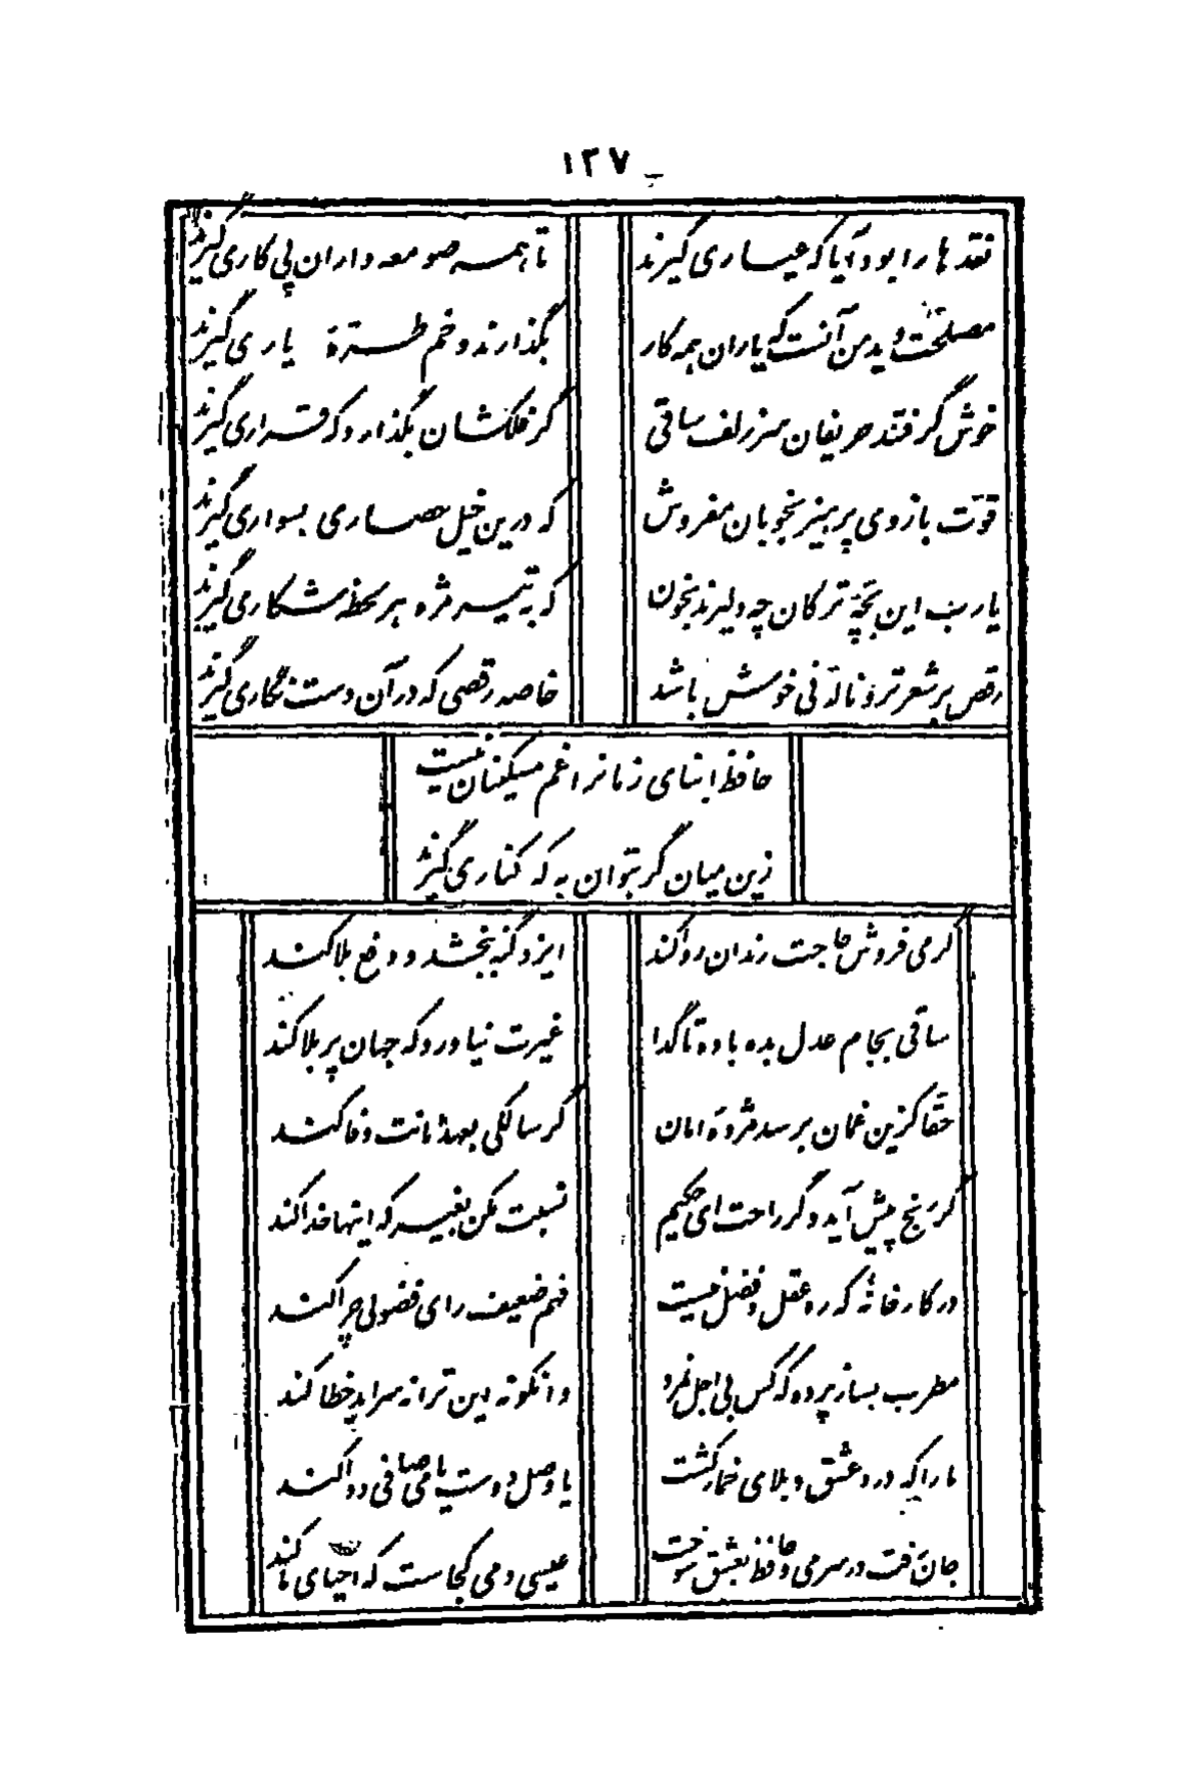 ۱۳۷
نقدها را بود آیا که عیاری گیرند
تا همه صومعه داران پی کاری گیرند
مصلحت دید من آنست که یاران همه کار
بگذارند و خم طرۀ یاری گیرند
خوش گرفتند حریفان سر زلف ساقی
گر فلکشان بگذارد که قراری گیرند
قوّت بازوی پرهیز بخوبان مفروش
که درین خیل حصاری بسواری گیرند
یارب این بچّۀ ترکان چه دلیرند بخون
که به تیر مژه هر لحظه شکاری گیرند
رقص بر شعر تر و نالۀ نی خوش باشد
خاصه رقصی که در آن دست نگاری گیرند
حافظ ابنای زمانرا غم مسکینان نیست
زین میان گر بتوان به که کناری گیرند
گر می فروش حاجت رندان روا کند
ایزد گنه ببخشد و دفع بلا کند
ساقی بجام عدل بده باده تا گدا
غیرت نیاورد که جهان پر بلا کند
حقّا کزین غمان برسد مژدۀ امان
گر سالکی بعهد امانت وفا کند
گر رنج پیش آید و گر راحت ای حکیم
نسبت مکن بغیر که اینها خدا کند
در کارخانۀ که ره عقل و فضل نیست
فهم ضعیف رای فضولی چرا کند
مطرب بساز پرده که کس بی اجل نمرد
وانکو نه این ترانه سراید خطا کند
ما را که درد عشق و بلای خمار کشت
یا وصل دوست یا می صافی دوا کند
جان رفت در سر می و حافظ بعشق سوخت
عیسی دمی کجاست که احیای ما کند